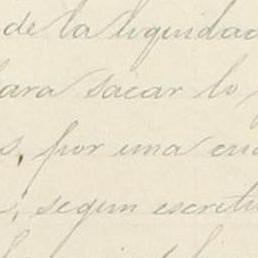 de la liquidac
para sacar lo
s, por una cua
, segun escritu